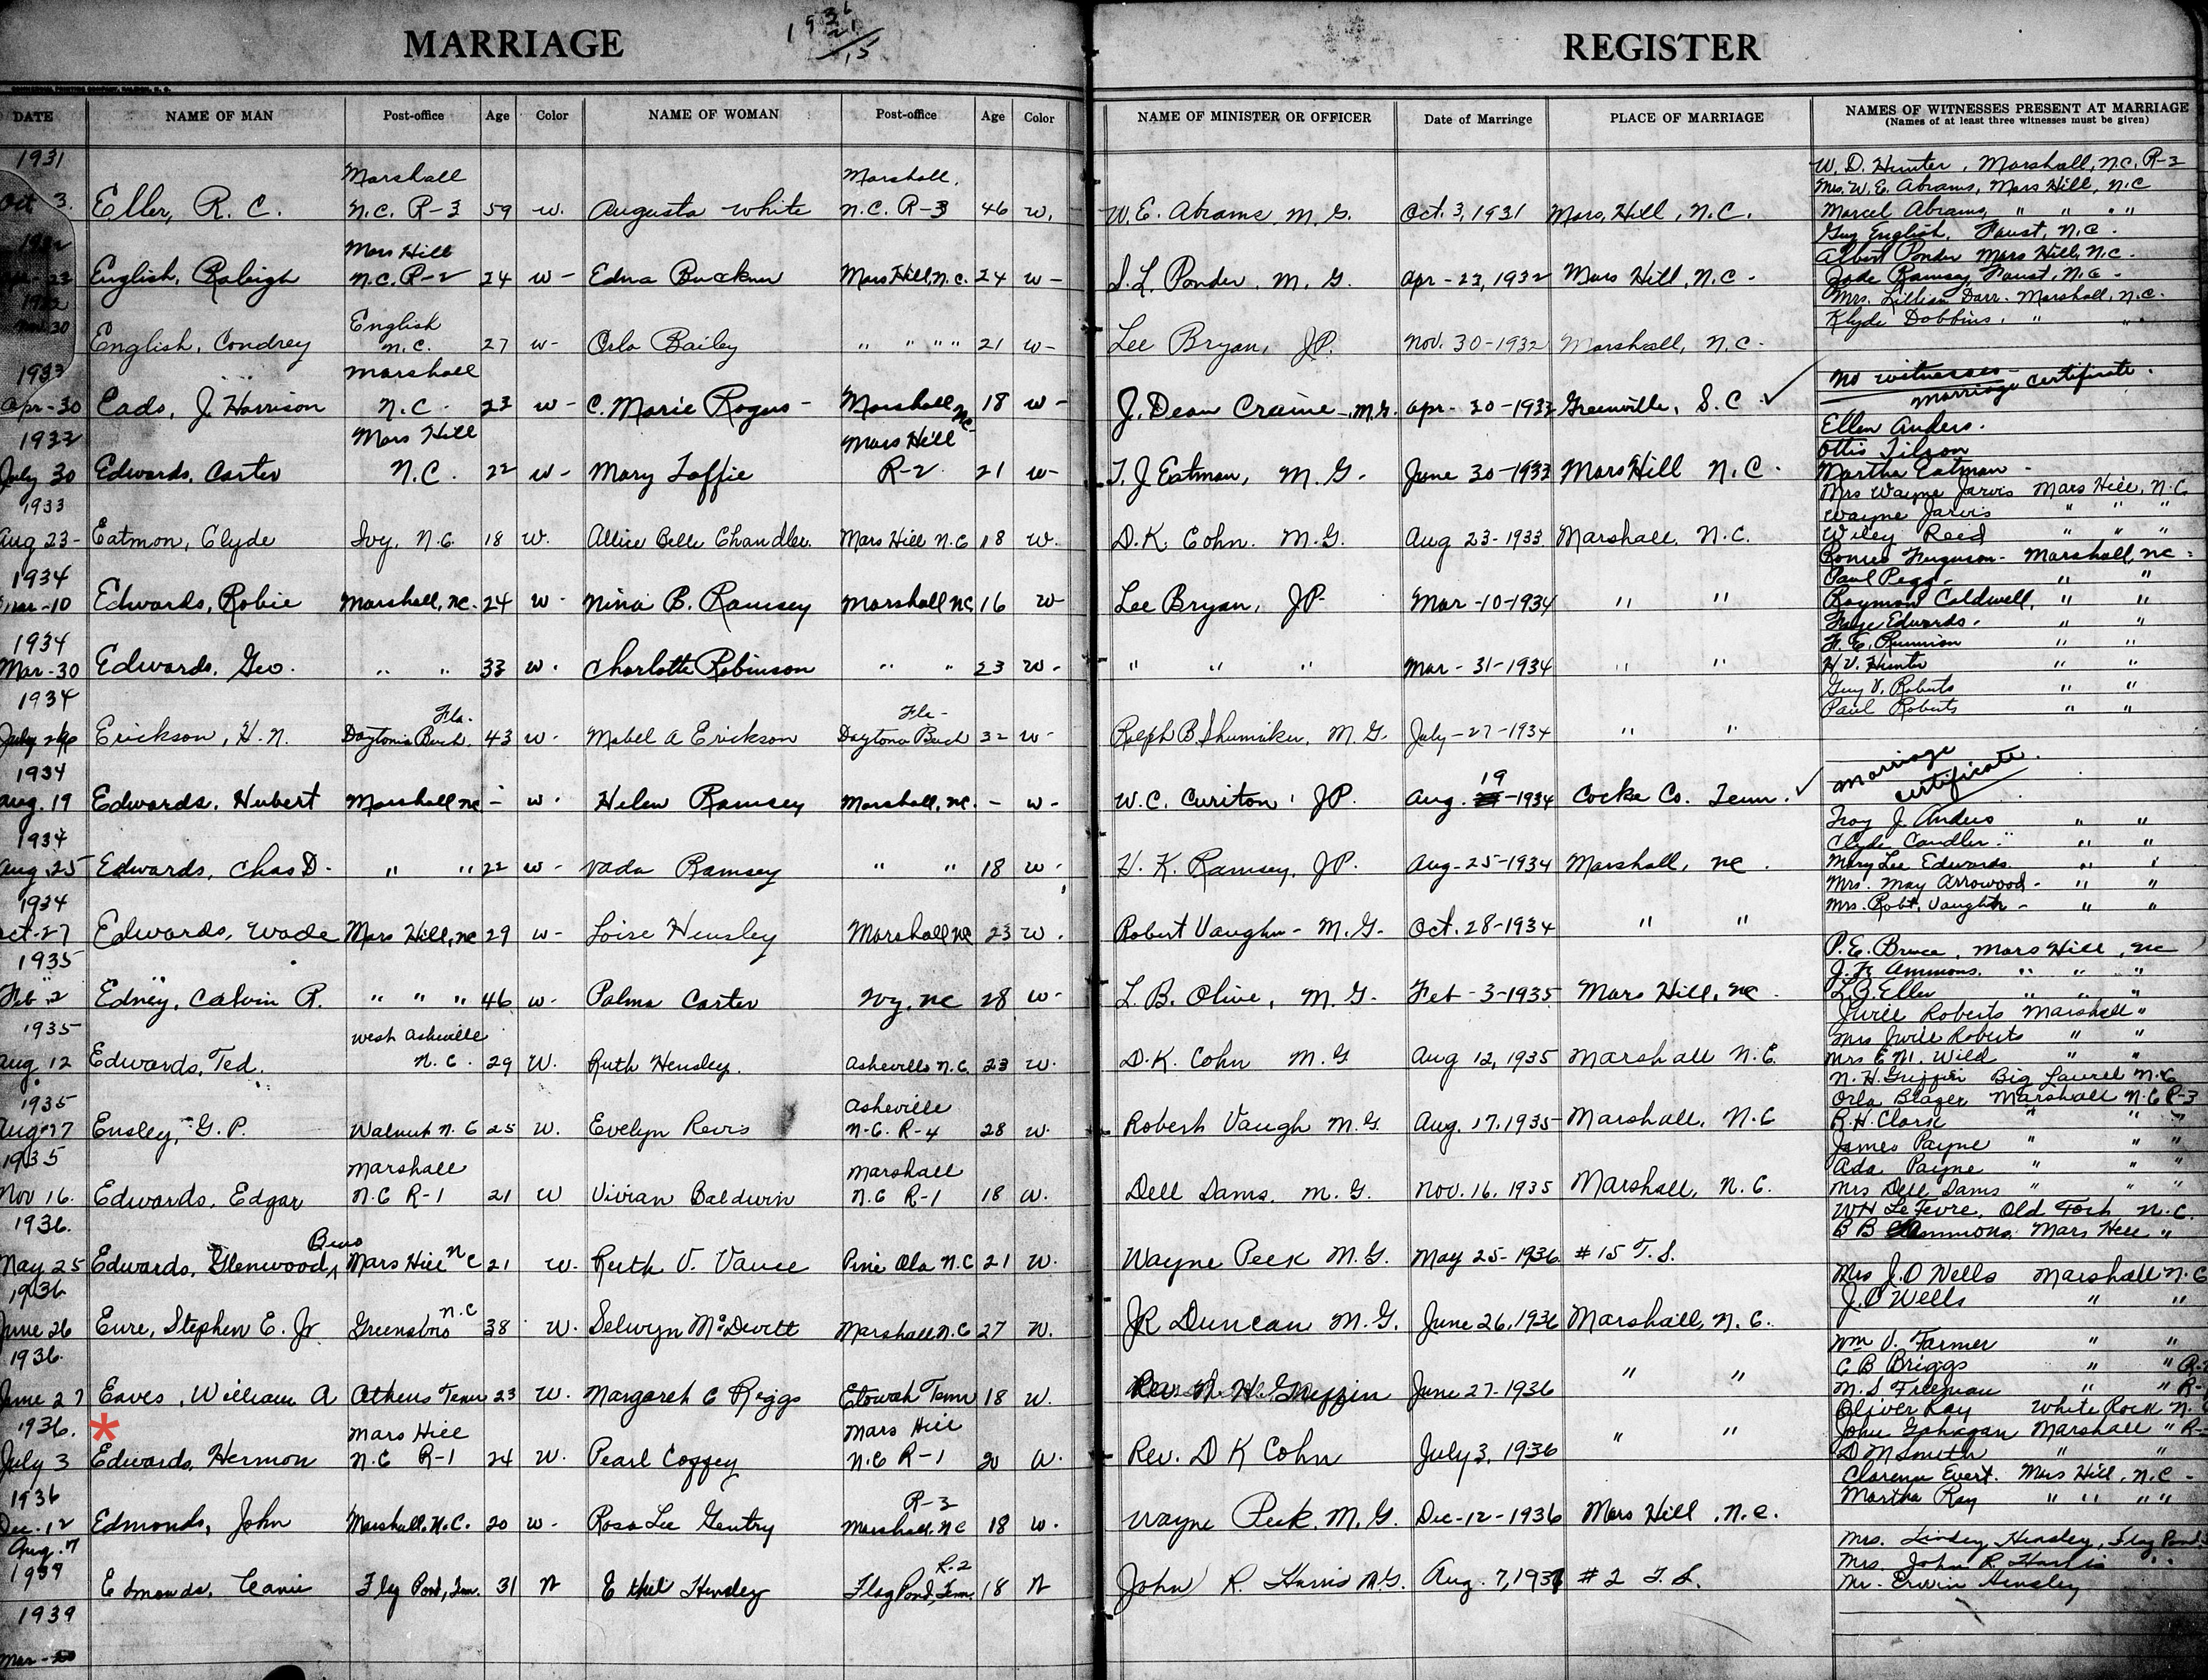 MARRIAGE
REGISTER
DATE NAME OF MAN Post-office Age Color NAME OF WOMAN Post-office Age Color NAME OF MINISTER OR OFFICER Date of Marriage PLACE OF MARRIAGE NAMES OF WITNESSES PRESENT AT MARRIAGE
(Names of at least three witnesses must be given)
1931 Marshall Marshall, W. D. Hunter, Marshall, N.C. R-3
Mrs. W. E. Abrams, Mars Hill, N.C
Oct 3. Eller, R. C. N.C. R-3 59 w. Augusta White N.C. R-3 46 w. W. E. Abrams M. G. Oct. 3, 1931 Mars, Hill, N.C. Marcel Abrams, " " " "
Guy English, Faust, N.C.
1932 Mars Hill Albert Ponder Mars Hill, N.C.
Apr-23 English, Raleigh N.C. R-2 24 w- Edna Buckner Mars Hill, N.C. 24 w- S. L. Ponder. M. G. Apr-23, 1932 Mars Hill, N.C. Jade Ramsey, Faust, N.C.
1932 Mrs. Lillian Darr. Marshall, N.C.
Nov 30 English Klyde Dobbins, " "
English, Condrey N.C. 27 w- Orla Bailey " " " " 21 w- Lee Bryan, JP. Nov. 30-1932 Marshall, N.C.
1933 Marshall No witnesses-
Marriage certificate.
Apr-30 Eads, J. Harrison N.C. 23 w- C. Marie Rogers- Marshall NC 18 w- J. Dean Craine-M.G. Apr-30-1933 Greenville, S.C.
1933 Mars Hill Mars Hill Ellen Anders.
Ottis Tilson
July 30 Edwards, Carter N.C. 22 w- Mary Loffie R-2 21 w- T. J. Eatman, M. G. June 30-1933 Mars Hill N.C. Martha Eatman-
1933 Mrs Wayne Jarvis Mars Hill, N.C.
Wayne Jarvis " " "
Aug 23- Eatmon, Clyde Ivy, N.C. 18 w. Allice Belle Chandler. Mars Hill N.C 18 w. D. K. Cohn. M. G. Aug 23-1933 Marshall N.C. Wiley Reed " " "
Romeo Ferguson- Marshall, NC
1934 Paul Pegg- " "
Mar-10 Edwards, Robie Marshall, NC. 24 w- Nina B. Ramsey Marshall NC 16 w- Lee Bryan, JP- Mar-10-1934 " " Raymond Caldwell, " "
Faye Edwards. " "
1934 F. E. Runnion " "
Mar-30 Edwards, Geo. " " 33 w. Charlotte Robinson " " 23 w- " " " Mar-31-1934 " " H. V. Hunter " "
1934 Guy V. Roberts " "
Fla. Fla- Paul Roberts " "
July 26 Erickson, H. N. Daytona Bech. 43 w- Mabel A Erickson Daytona Bech 32 w- Ralph B. Shumaker, M. G. July-27-1934 " "
1934 19 Marriage
certificate.
Aug. 19 Edwards, Hubert Marshall NC - w. Helen Ramsey Marshall, NC. - w- W. C. Curiton, JP. Aug. -1934 Cocke Co. Tenn.
1934 Troy J. Anders " "
Clyde Candler " "
Aug. 25 Edwards, Chas D. " " 22 w- Vada Ramsey " " 18 w- H. K. Ramsey, JP. Aug-25-1934 Marshall, NC. Mary Lee Edwards " "
Mrs. May Arrowood- " "
1934 Mrs. Robt. Vaughn- " "
Oct-27 Edwards, Wade Mars Hill, NC 29 w- Loise Hensley Marshall NC 23 w. Robert Vaughn- M. G- Oct. 28-1934 " "
1935 P. E. Bruce, Mars Hill, NC
J. F. Ammons. " " "
Feb. 2 Edney, Calvin R. " " " 46 w- Palma Carter Ivy, NC 28 w- L. B. Olive, M. G- Feb-3-1935 Mars Hill, NC. L. G. Eller " " "
Jwill Roberts Marshall "
1935 West Asheville Mrs Jwill Roberts " "
Aug 12 Edwards, Ted. N.C. 29 W. Ruth Hensley. Asheville N.C. 23 w. D. K. Cohn M. G Aug 12, 1935 Marshall N.C. Mrs E. M. Wild " "
N. H. Griffin Big Laurel N.C
1935 Asheville Orla Blazer Marshall N.C R-3
Aug 17 Ensley, G. P. Walnut N. C 25 W. Evelyn Revis N.C. R-4 28 w. Robert Vaugh M. G. Aug. 17, 1935 Marshall, N.C R. H. Clark " " "
1935 Marshall Marshall James Payne " " "
Ada Payne " " "
Nov 16. Edwards, Edgar N.C R-1 21 W Vivian Baldwin N.C R-1 18 w. Dell Sams, M. G. Nov. 16, 1935 Marshall, N.C. Mrs Dell Sams " " "
1936. WH LeFevre, Old Fort N.C.
B B Ammons Mars Hill "
May 25 Edwards, Glenwood Mars Hill NC 21 w. Ruth V. Vance Pine Ola N.C 21 w. Wayne Peek M. G. May 25-1936 #15 T. S.
1936 Mrs J. O Wells Marshall N.C
J. O Wells " "
June 26 Eure, Stephen E. Jr Greensboro N.C 38 w. Selwyn McDevitt Marshall N.C 27 w. JR Duncan M. G. June 26, 1936 Marshall, N. C.
1936. Wm V. Farmer " "
C B Briggs " "
June 27 Eaves, William A Athens Tenn 23 w. Margaret C Riggs Etowah Tenn 18 w. Rev N. H. Griffin June 27-1936 " " M. S Freeman " "
1936. * Mars Hill Mars Hill Oliver Ray White Rock N.C
John Gahagan Marshall "
July 3 Edwards, Hermon N.C R-1 24 w. Pearl Coffey N.C R-1 20 w. Rev. D K Cohn July 3, 1936 " " D M Smith " "
1936 R-3 Clarence Evert. Mars Hill, N.C-
Martha Ray " " " "
Dec-12 Edmonds, John Marshall, N.C. 20 w- Rosa Lee Gentry Marshall, NC 18 w. Wayne Peek, M. G. Dec-12-1936 Mars Hill, N.C.
Aug. 7 Mrs. Lindey Hensley, Flag Pond
1937 R. 2 Mrs. John R. Harris " "
Edmonds, Flag Pond, Tenn. 31 Ethel Hensley Flag Pond, Tenn. 18 John R. Harris M. G. Aug. 7, 1937 #2 T. S. Mr. Erwin Hensley
1939
Mar-